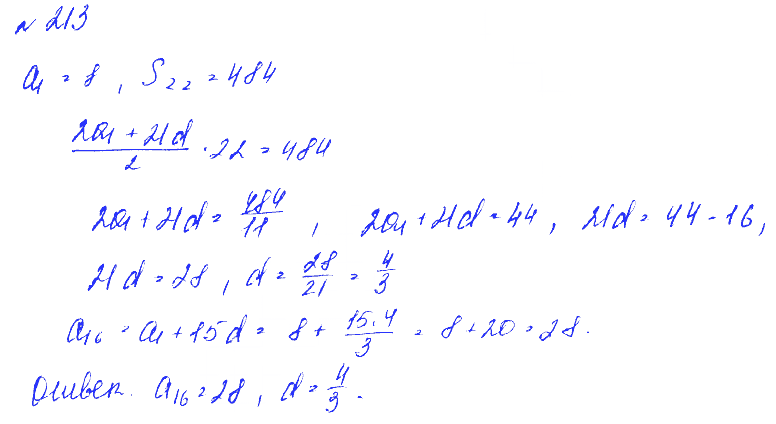 № 213
a₁ = 8 , S₂₂ = 484
(2a₁ + 21d)/2 · 22 = 484
2a₁ + 21d = 484/11 , 2a₁ + 21d = 44 , 21d = 44 - 16 ,
21d = 28 , d = 28/21 = 4/3
a₁₆ = a₁ + 15d = 8 + 15·4/3 = 8 + 20 = 28.
Ответ. a₁₆ = 28 , d = 4/3 .